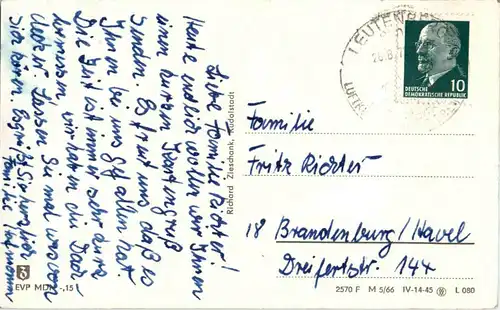 Liebe Familie Richter!
Heute endlich wollen wir Ihnen
einen kurzen Kartengruß
senden. Es freut uns daß es
Ihnen bei uns gefallen hat.
Die Zeit ist immer sehr kurz
wir haben die Bade
Lassen Sie mal was von
sich hören. Es grüßt Sie herzlich
Familie
Richard Zieschank, Rudolstadt
EVP MDN -,15
LEUTENBERG
DEUTSCHE
DEMOKRATISCHE REPUBLIK
10
Familie
Fritz Richter
18 Brandenburg/Havel
Dreifertstr. 144
2570 F M 5/66 IV-14-45 L 080